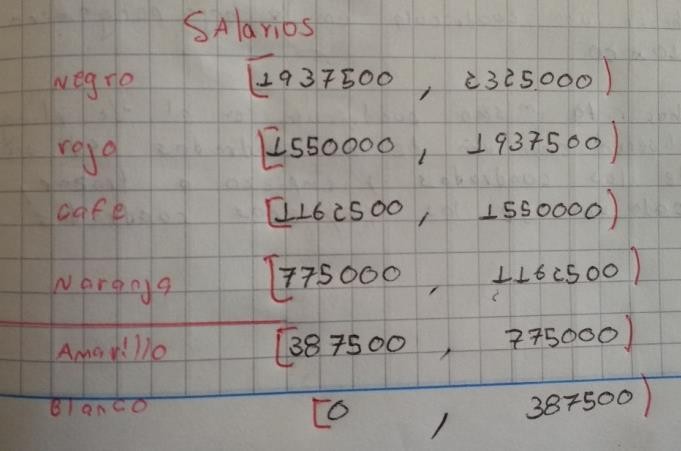 SAlarios
Negro [1937500 , 2325000)
rojo [1550000 , 1937500)
cafe [1162500 , 1550000)
Naranja [775000 , 1162500)
AMarillo [387500 , 775000)
Blanco [0 , 387500)